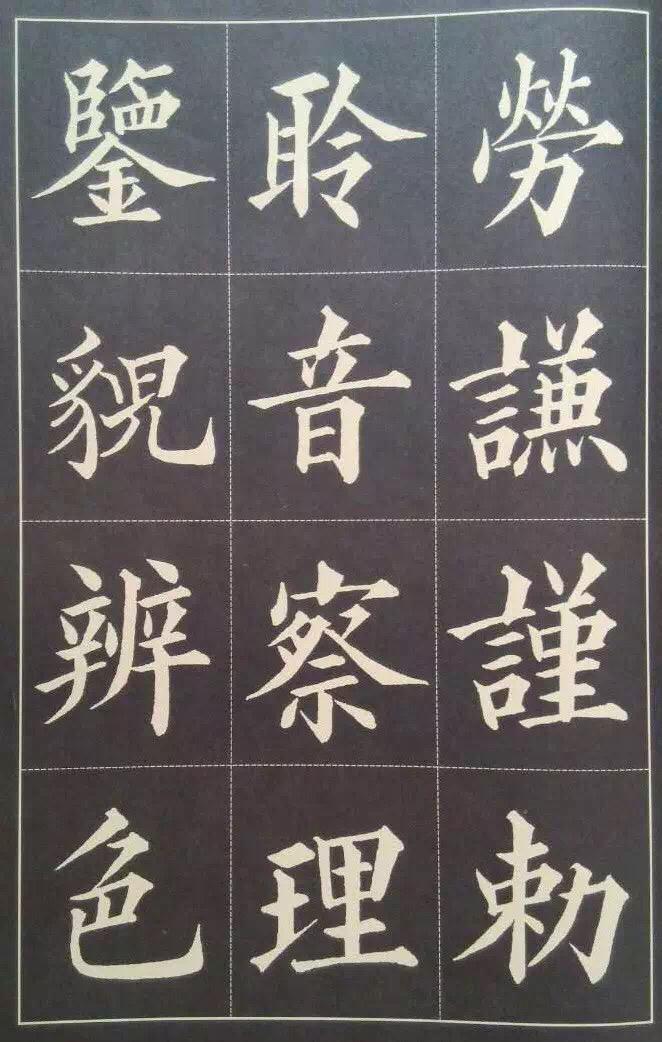 勞謙謹勅
聆音察理
鑒貌辨色